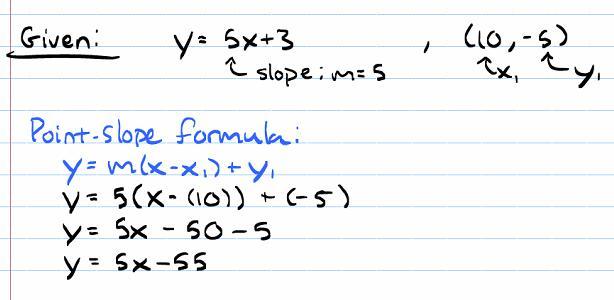 Given: y = 5x+3 , (10,-5)
slope: m=5 x₁ y₁
Point-slope formula:
y = m(x-x₁) + y₁
y = 5(x-(10)) + (-5)
y = 5x - 50 - 5
y = 5x-55